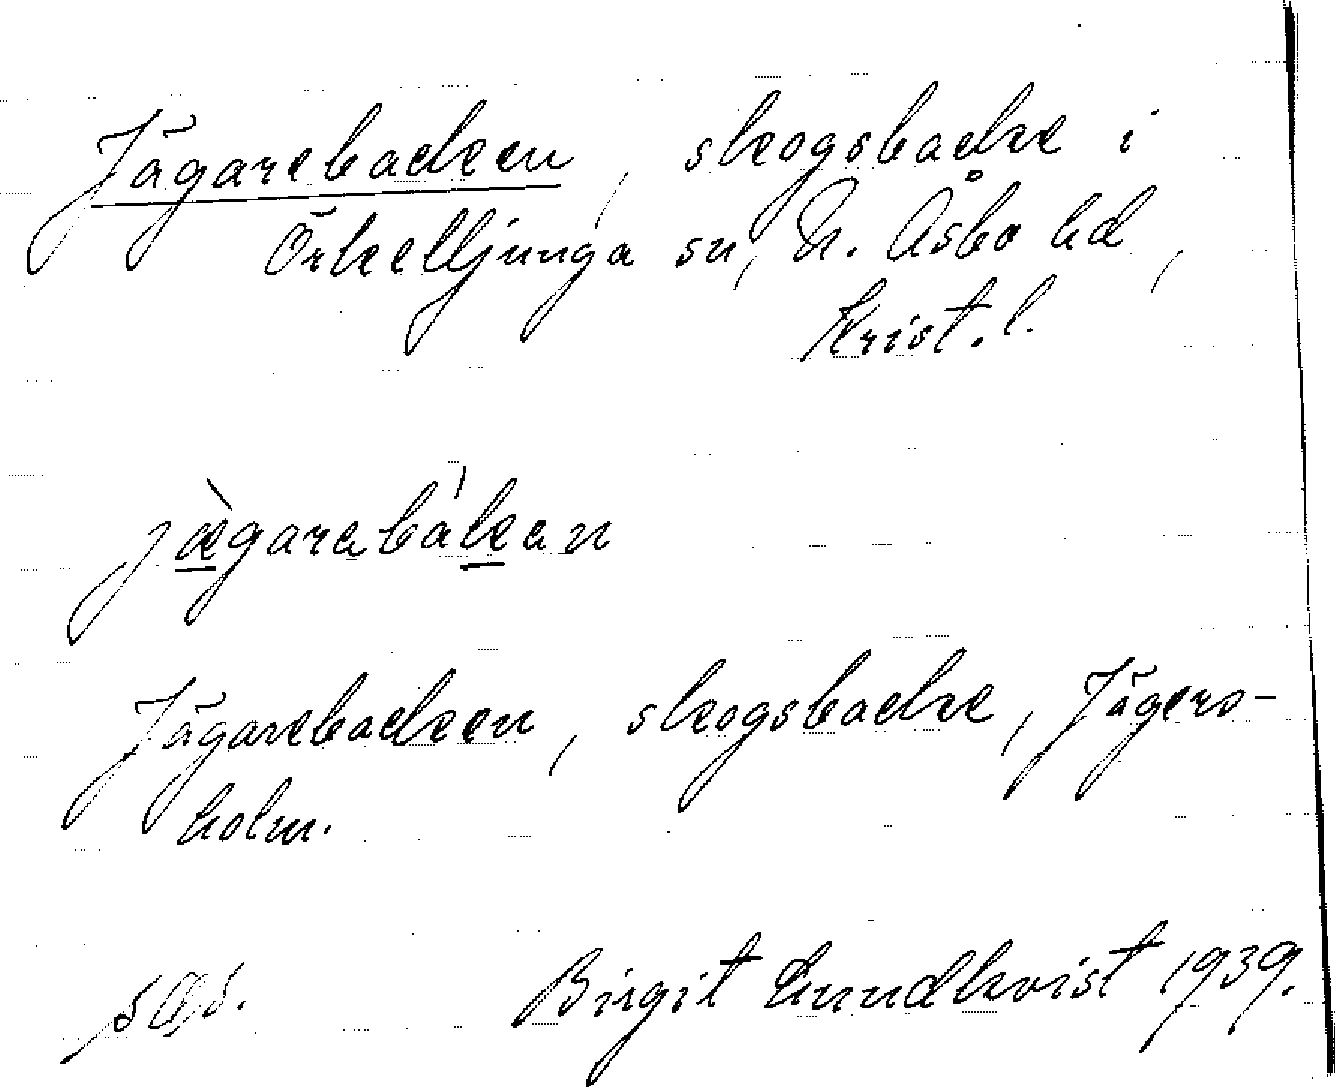 Jägarebacken, skogsbacke i
Örkelljunga sn, N. Åsbo hd,
Krist. l.
jæ̀garebákan
Jägarebacken, skogsbacke, Jägers-
holm.
Birgit Lundkvist 1939.